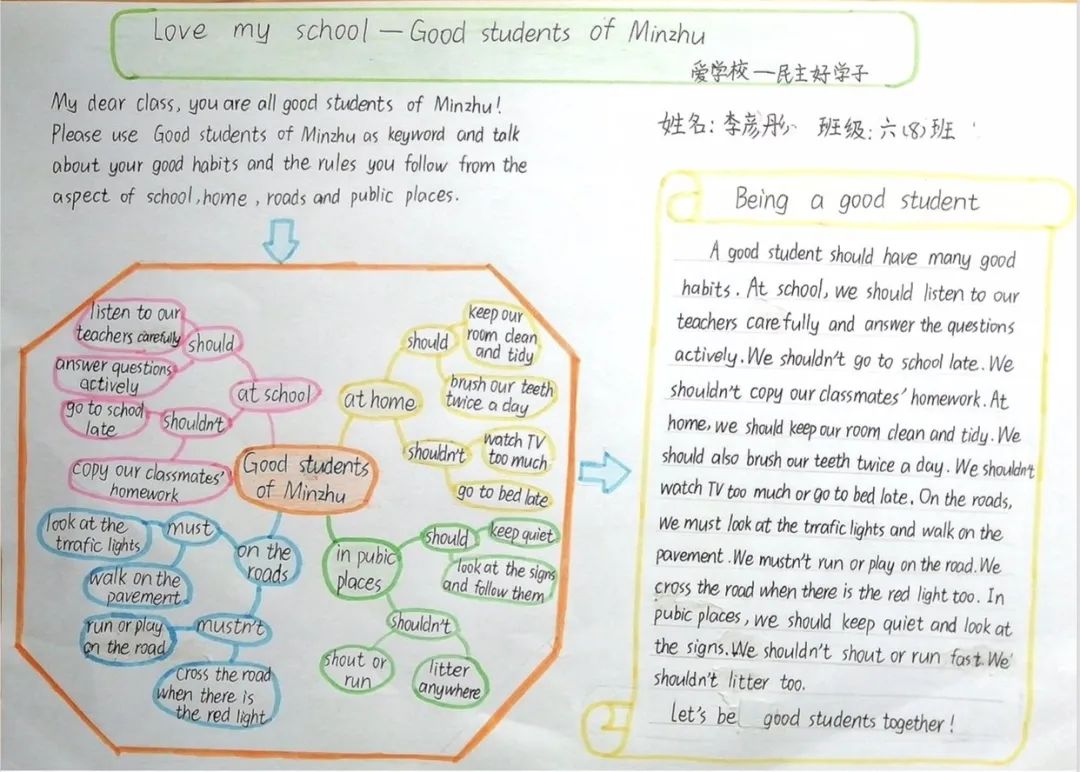 Love my school — Good students of Minzhu
爱学校—民主好学子
My dear class, you are all good students of Minzhu!
Please use Good students of Minzhu as keyword and talk
about your good habits and the rules you follow from the
aspect of school, home, roads and public places.
姓名: 李彦彤 班级: 六(8)班
listen to our
teachers carefully
should
answer questions
actively
at school
go to school
late
shouldn't
copy our classmates'
homework
keep our
room clean
and tidy
should
brush our teeth
twice a day
at home
shouldn't
watch TV
too much
go to bed late
Good students
of Minzhu
look at the
trrafic lights
must
walk on the
pavement
on the
roads
run or play
on the road
mustn't
cross the road
when there is
the red light
in pubic
places
should
keep quiet
look at the signs
and follow them
shouldn't
shout or
run
litter
anywhere
Being a good student
A good student should have many good
habits. At school, we should listen to our
teachers carefully and answer the questions
actively. We shouldn't go to school late. We
shouldn't copy our classmates' homework. At
home, we should keep our room clean and tidy. We
should also brush our teeth twice a day. We shouldn't
watch TV too much or go to bed late. On the roads,
we must look at the trrafic lights and walk on the
pavement. We mustn't run or play on the road. We
cross the road when there is the red light too. In
pubic places, we should keep quiet and look at
the signs. We shouldn't shout or run fast. We
shouldn't litter too.
Let's be good students together!